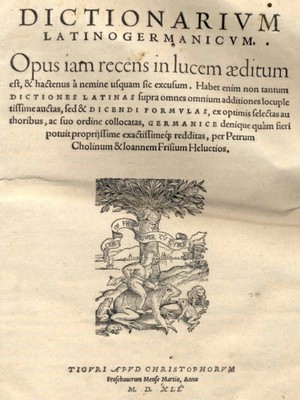 DICTIONARIVM
LATINOGERMANICVM.
Opus iam recens in lucem æditum
est, & hactenus à nemine usquam sic excusum. Habet enim non tantum
DICTIONES LATINAS supra omnes omnium additiones locuple
tissime auctas, sed & DICENDI FORMVLAS, ex optimis selectas au
thoribus, ac suo ordine collocatas, GERMANICE denique quàm fieri
potuit proprijssime exactissimeq́; redditas, per Petrum
Cholinum & Ioannem Frisium Heluetios.
TIGVRI APVD CHRISTOPHORVM
Froschouerum Mense Martio, Anno
M. D. XLI.